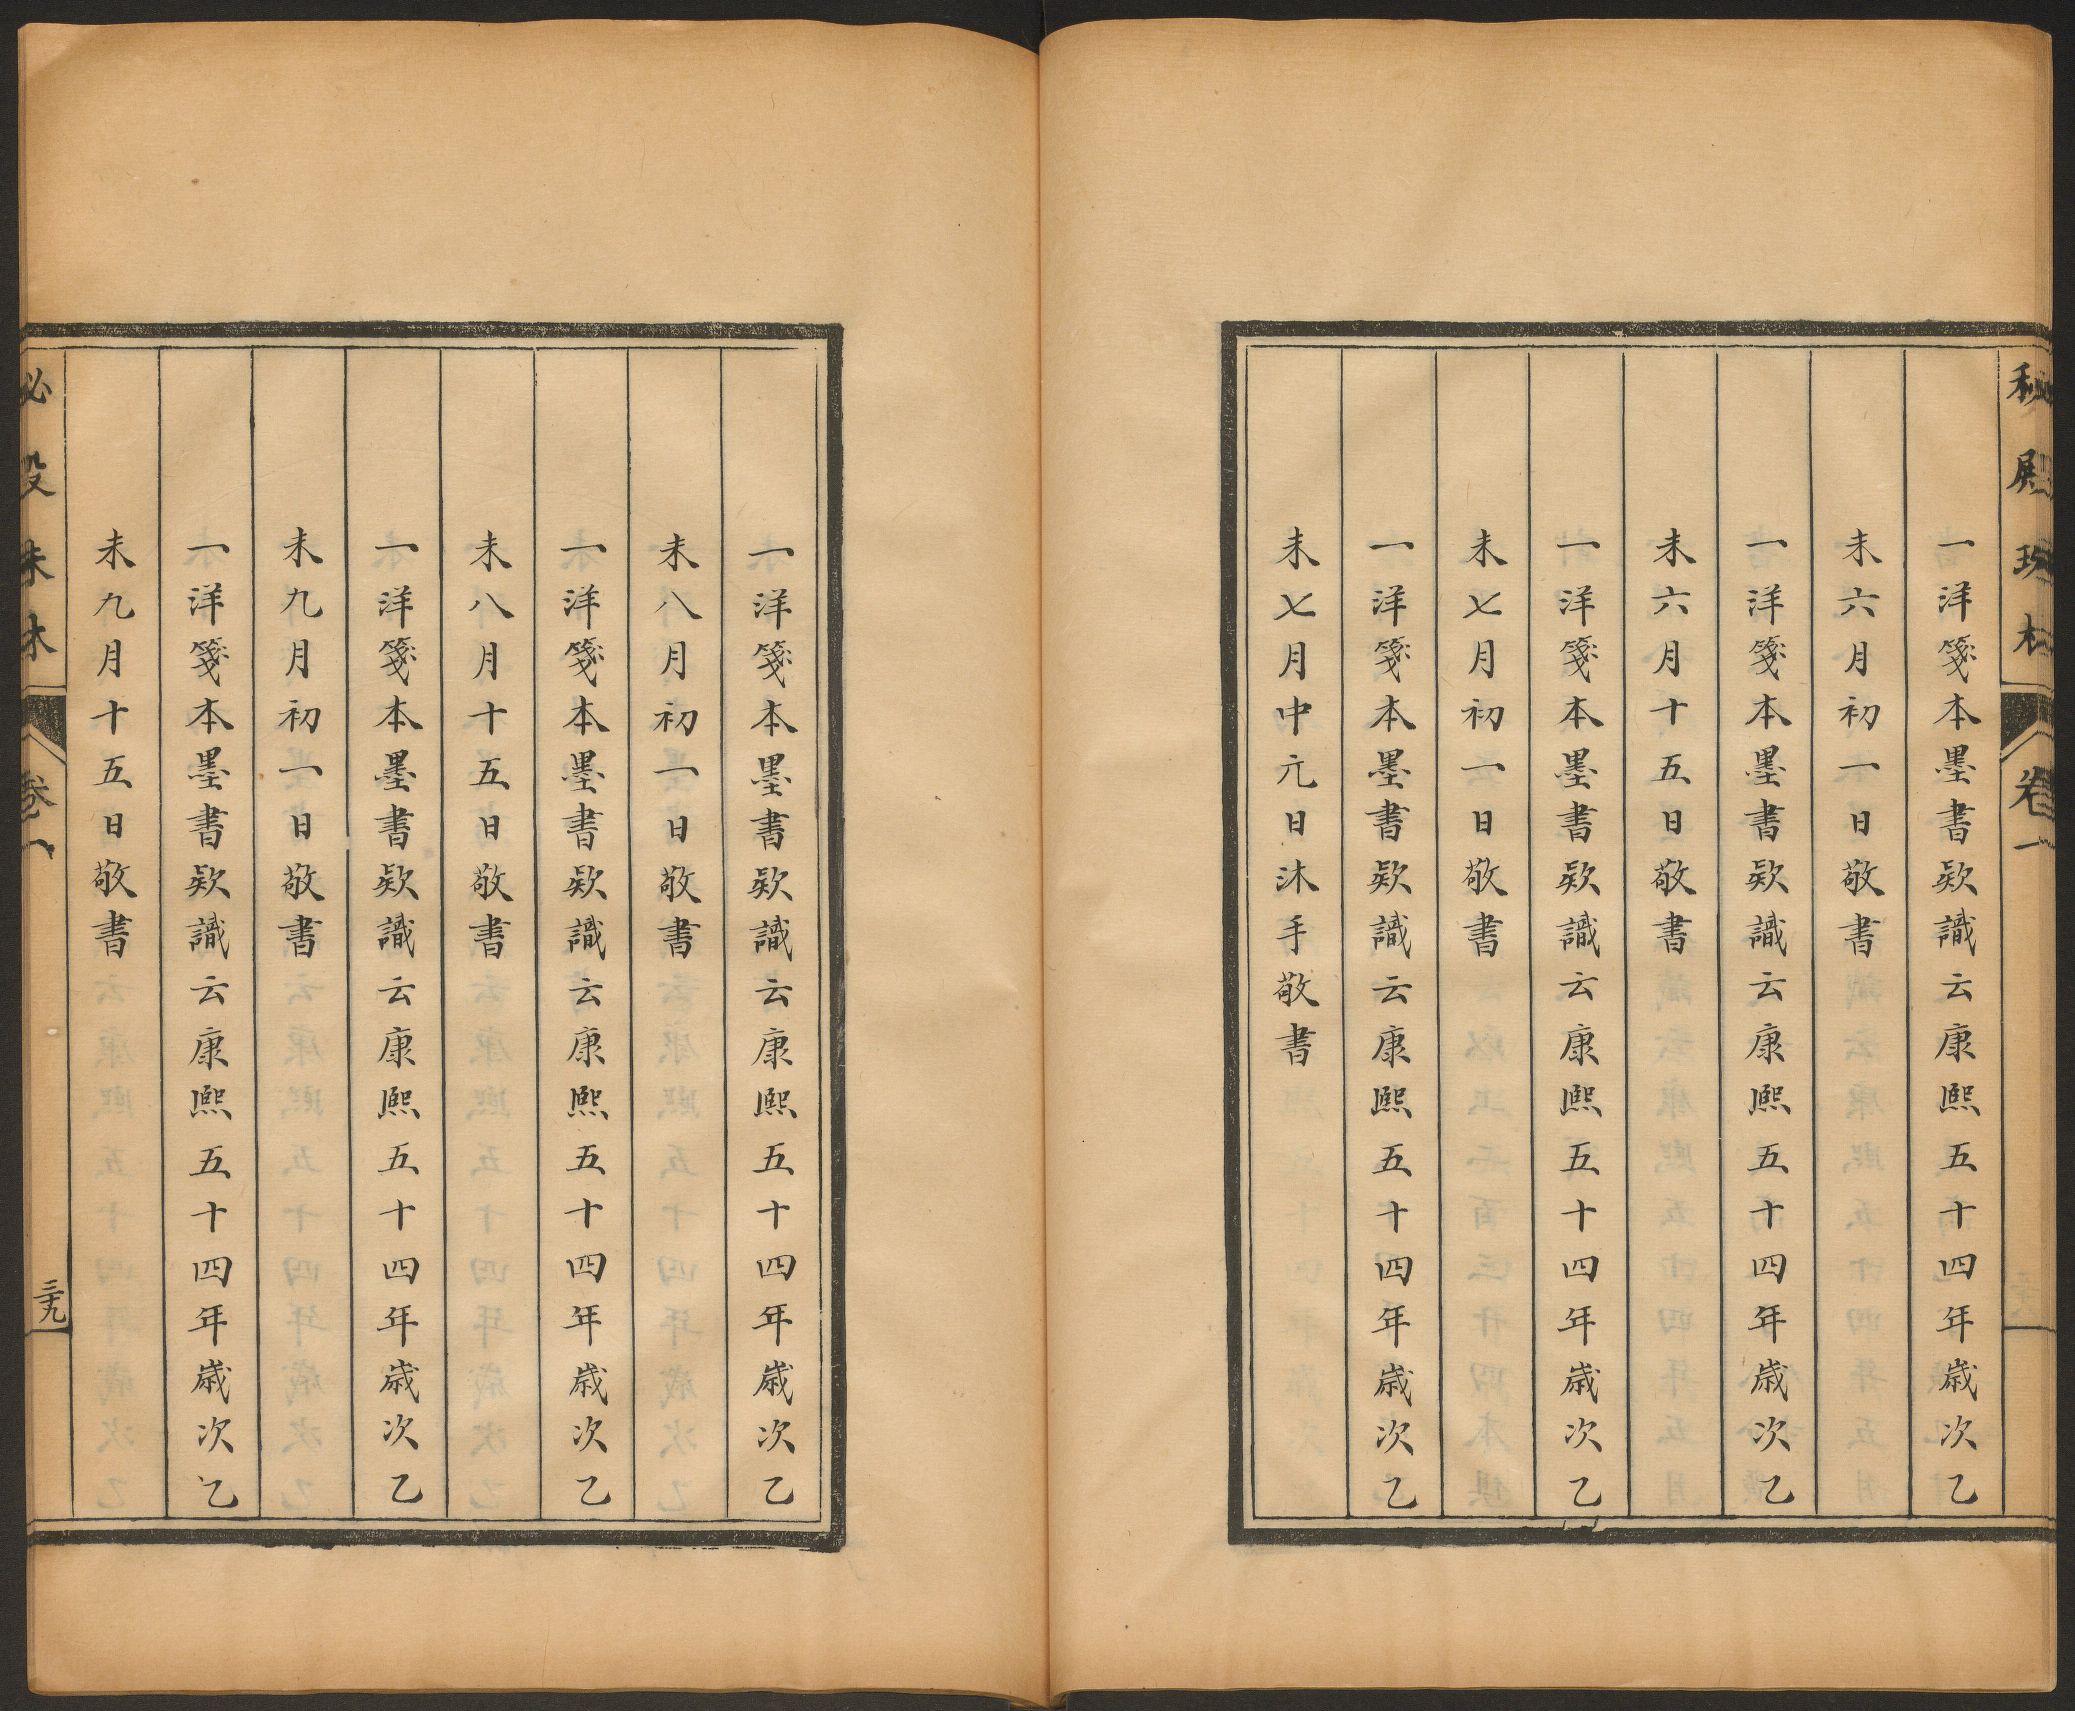 秘殿珠林 卷一
一洋箋本墨書欵識云康熙五十四年歲次乙
未六月初一日敬書
一洋箋本墨書欵識云康熙五十四年歲次乙
未六月十五日敬書
一洋箋本墨書欵識云康熙五十四年歲次乙
未七月初一日敬書
一洋箋本墨書欵識云康熙五十四年歲次乙
未七月中元日沐手敬書
一洋箋本墨書欵識云康熙五十四年歲次乙
未八月初一日敬書
一洋箋本墨書欵識云康熙五十四年歲次乙
未八月十五日敬書
一洋箋本墨書欵識云康熙五十四年歲次乙
未九月初一日敬書
一洋箋本墨書欵識云康熙五十四年歲次乙
未九月十五日敬書
秘殿珠林 卷一 三十九